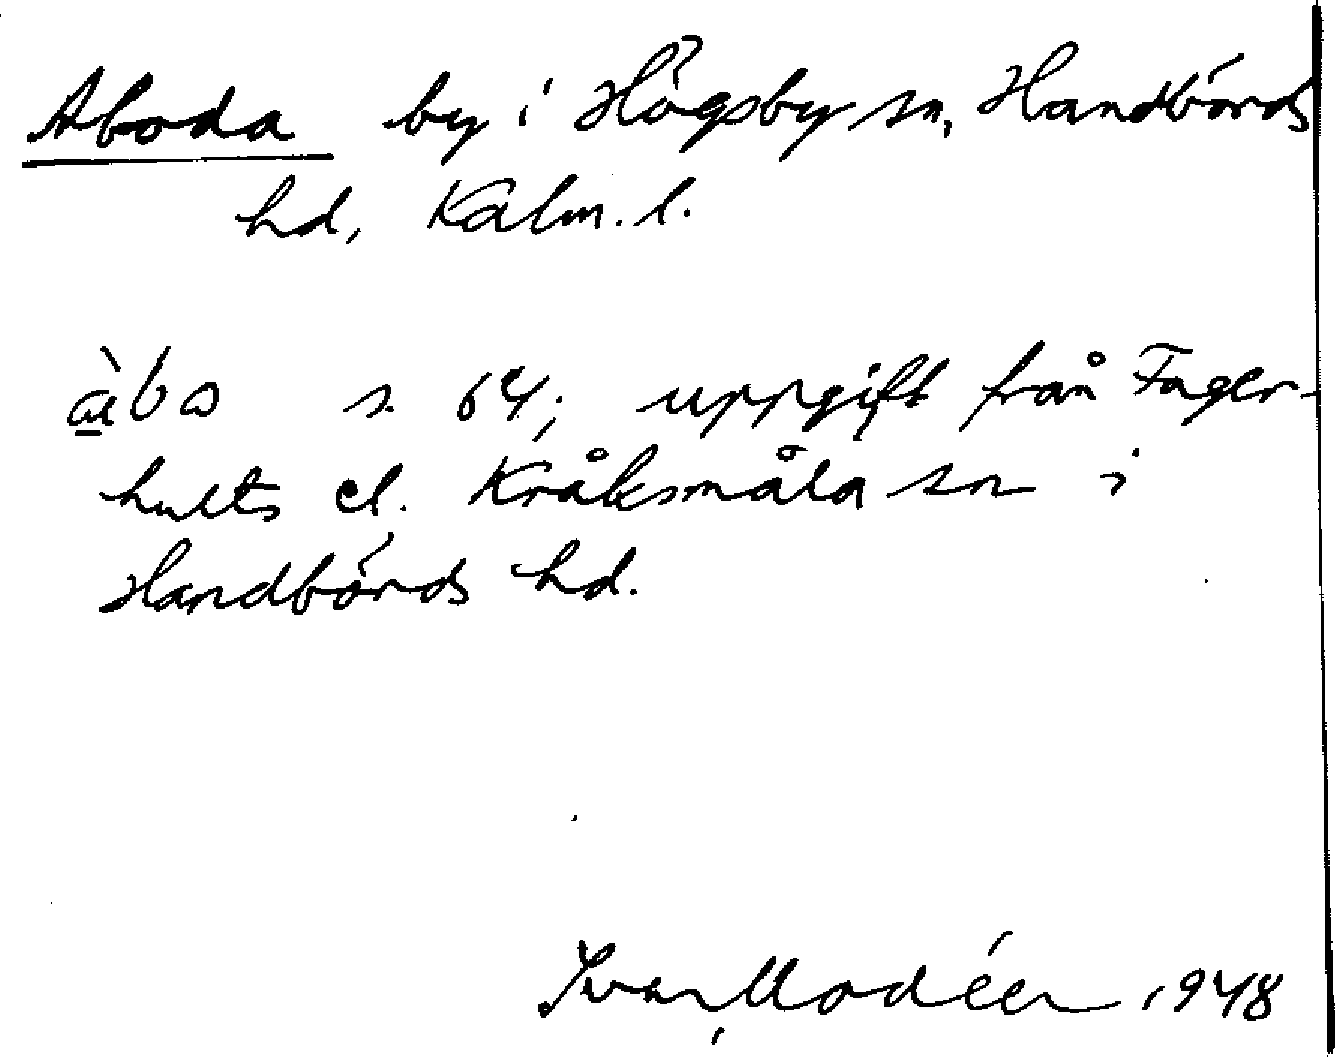 Aboda by i Högsby sn, Handbörds
hd, Kalm. l.
s. 64; uppgift från Fager-
hults el. Kråksmåla sn i
Handbörds hd.
Ivar Modéer 1948